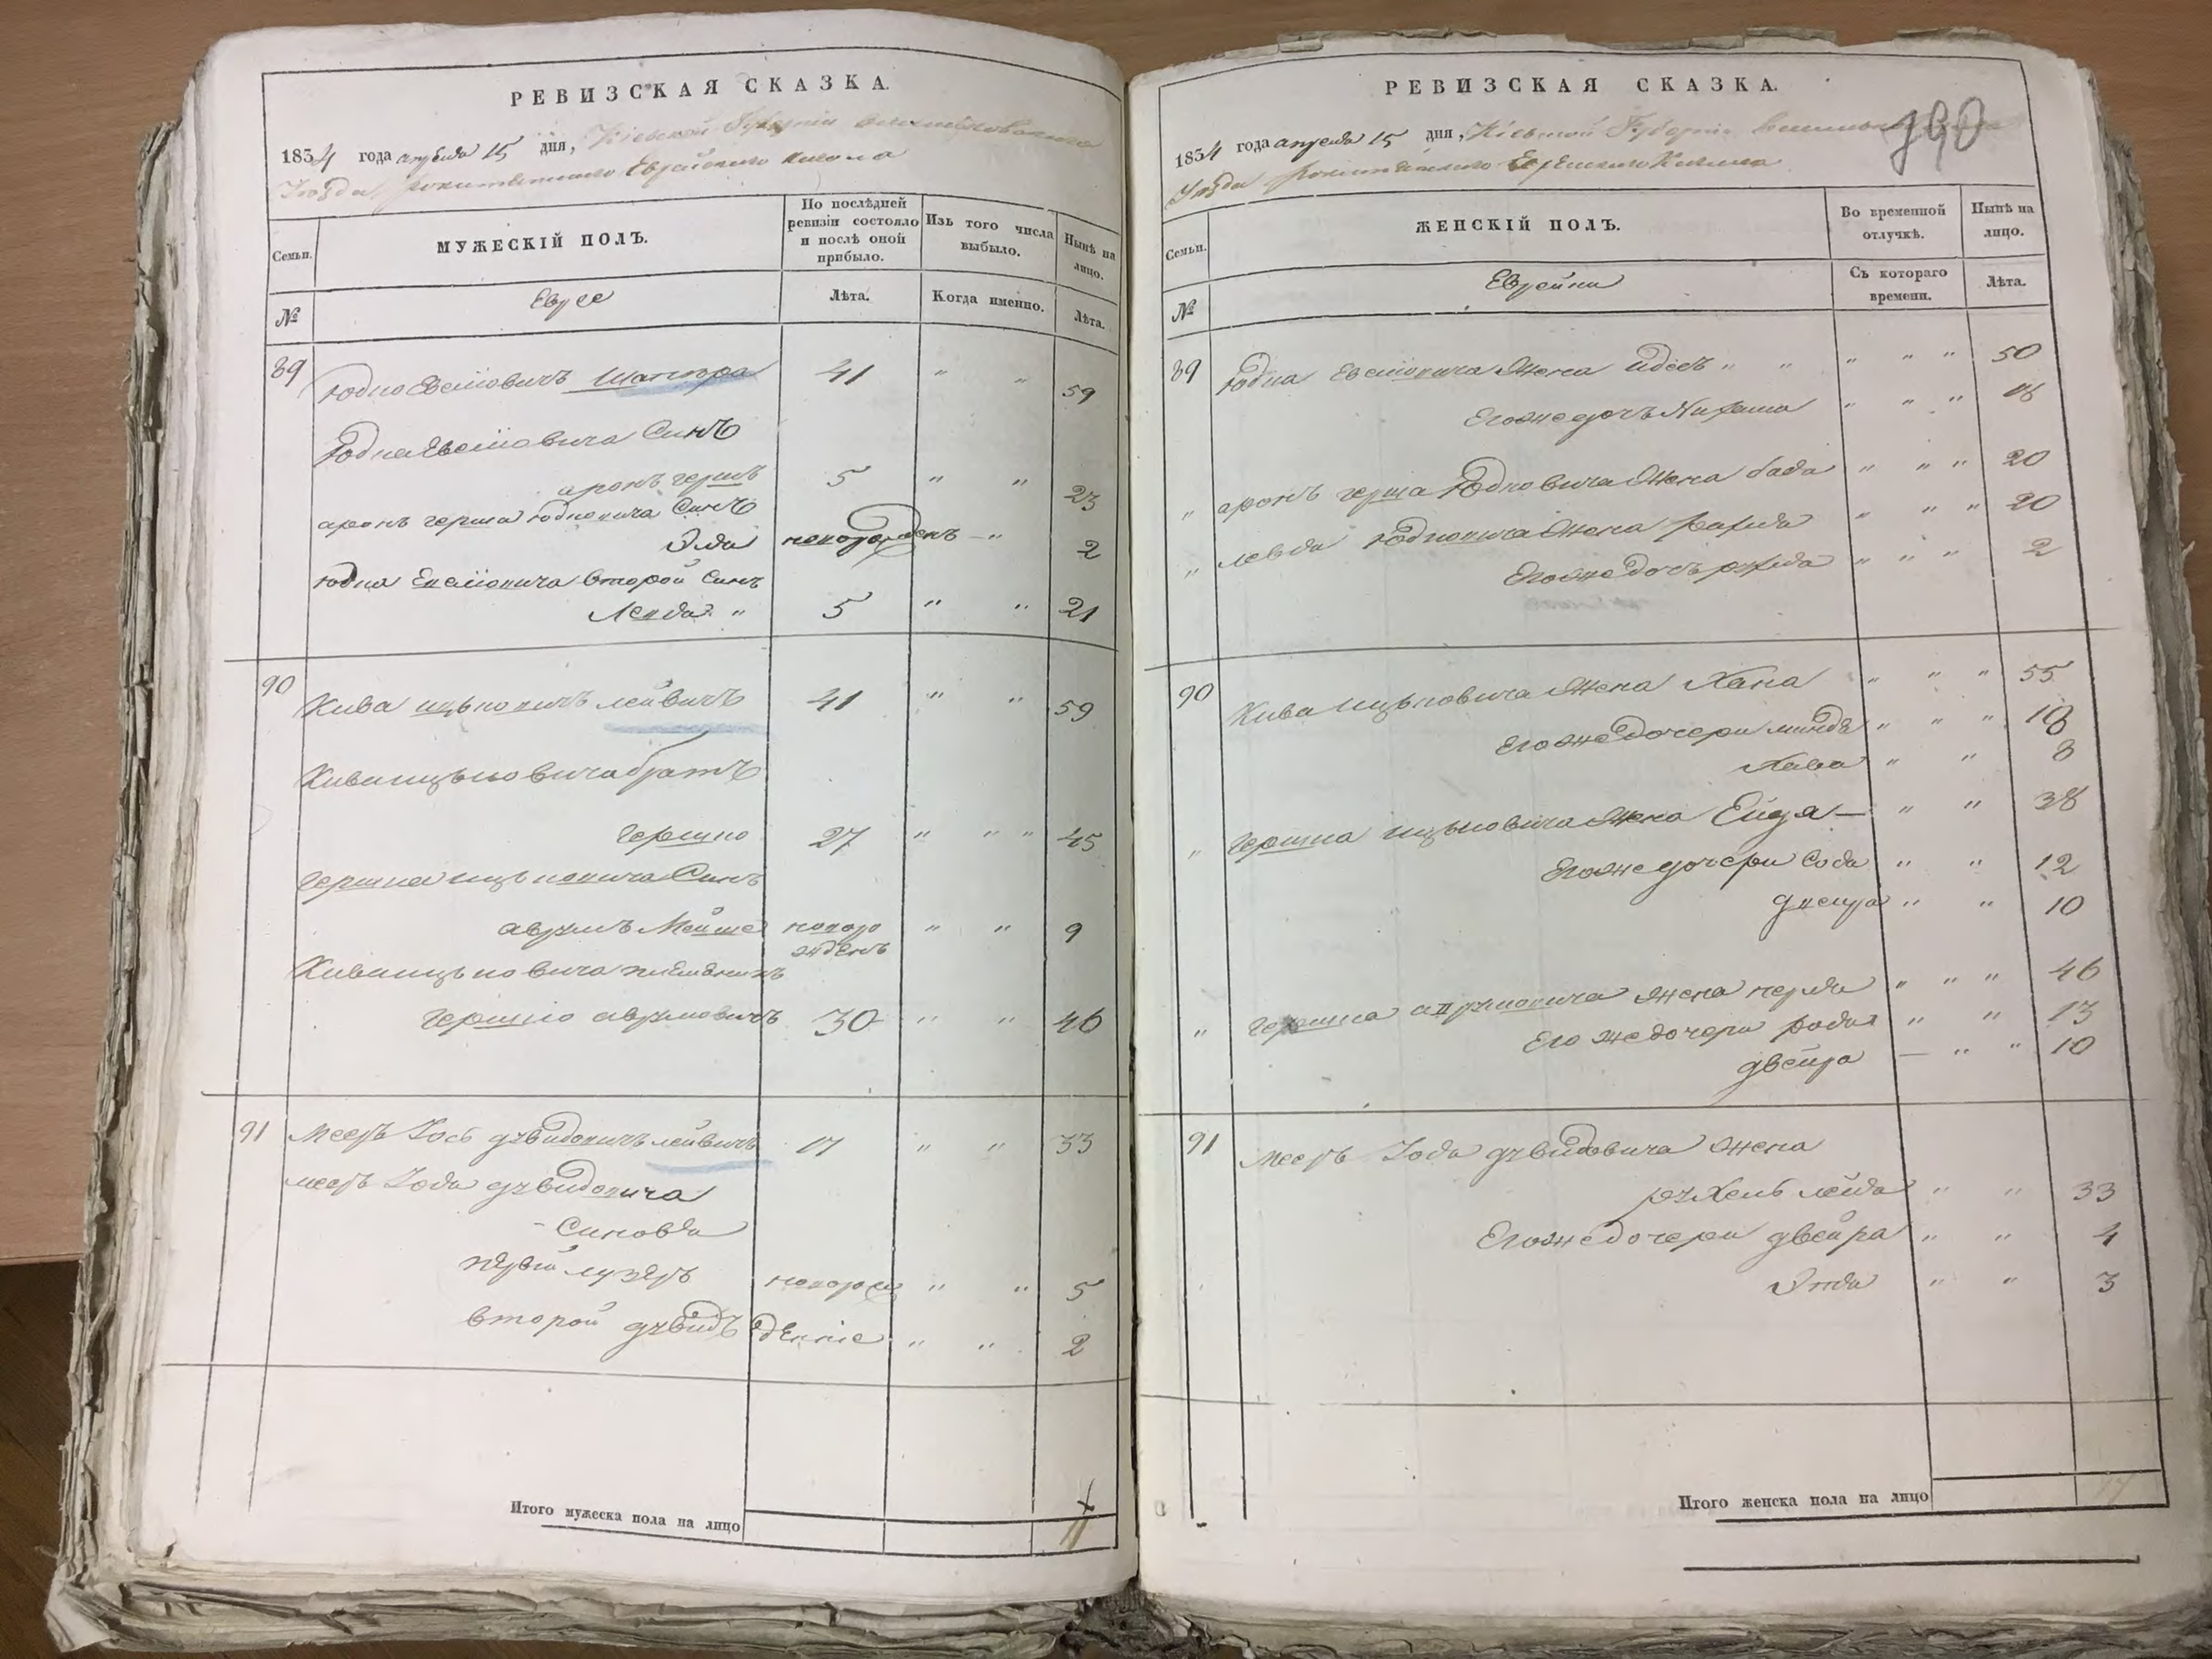 РЕВИЗСКАЯ СКАЗКА.
1854 года апреля 15 дня, Кіевской Губерніи
Уезда Еврейского Кагала
Семьи.
МУЖЕСКІЙ ПОЛЪ.
По послѣдней ревизіи состояло и послѣ оной прибыло.
Изъ того числа выбыло.
Нынѣ на лицо.
№
Евреи
Лѣта.
Когда именно.
Лѣта.
89 Юдко Евсіiовичъ Шапира 41 " " 59
Юдка Евсіiовича Синъ
аронъ гершъ 5 " " 23
аронъ герша Юдковича Синъ
Эля новорожденъ — " 2
Юдка Евсіiовича второй Синъ
Лейба " 5 " " 21
90 Кива ицьковичъ лейвичъ 41 " " 59
Кива ицьковича братъ
Гершко 27 " " " 45
Гершка ицьковича Синъ
аврумъ Мойше новорожденъ " " 9
Кива ицьковича племенникъ
Гершко аврумовичъ 30 " " 46
91 Мееръ Іось дувидовичъ лейвичъ 17 " " 33
мееръ Іося дувидовича
- Синовья
первій лузеръ новоро " " 5
второй дувидъ жденніе " " 2
Итого мужеска пола на лицо 11
РЕВИЗСКАЯ СКАЗКА.
190
1854 года апреля 15 дня, Кіевской Губерніи
Уезда Еврейского Кагала
Семьи.
ЖЕНСКІЙ ПОЛЪ.
Во временной отлучкѣ.
Нынѣ на лицо.
№
Еврейки
Съ котораго времени.
Лѣта.
89 Юдка Евсіiовича Жена идесъ " " " " " 50
Егоже дочъ " " " 16
" аронъ герша Юдковича Жена бася " " " 20
" лейба Юдковича Жена рахля " " " 20
Егоже дочъ рухля " " " 2
90 Кива ицьковича Жена Хана " " " 55
Егоже дочери миндя " " " 18
Хава " " 8
" Гершка ицьковича Жена Ейдя — " " 38
Егоже дочери Сося " " 12
двейра " " 10
" Гершка аврумовича Жена перля " " " 46
Его же дочери рося " " 13
двейра — " " 10
91 Мееръ Іося дувидовича Жена
рухель лейя " " 33
Егоже дочери двейра " " 4
Этя " " 3
Итого женска пола на лицо 17